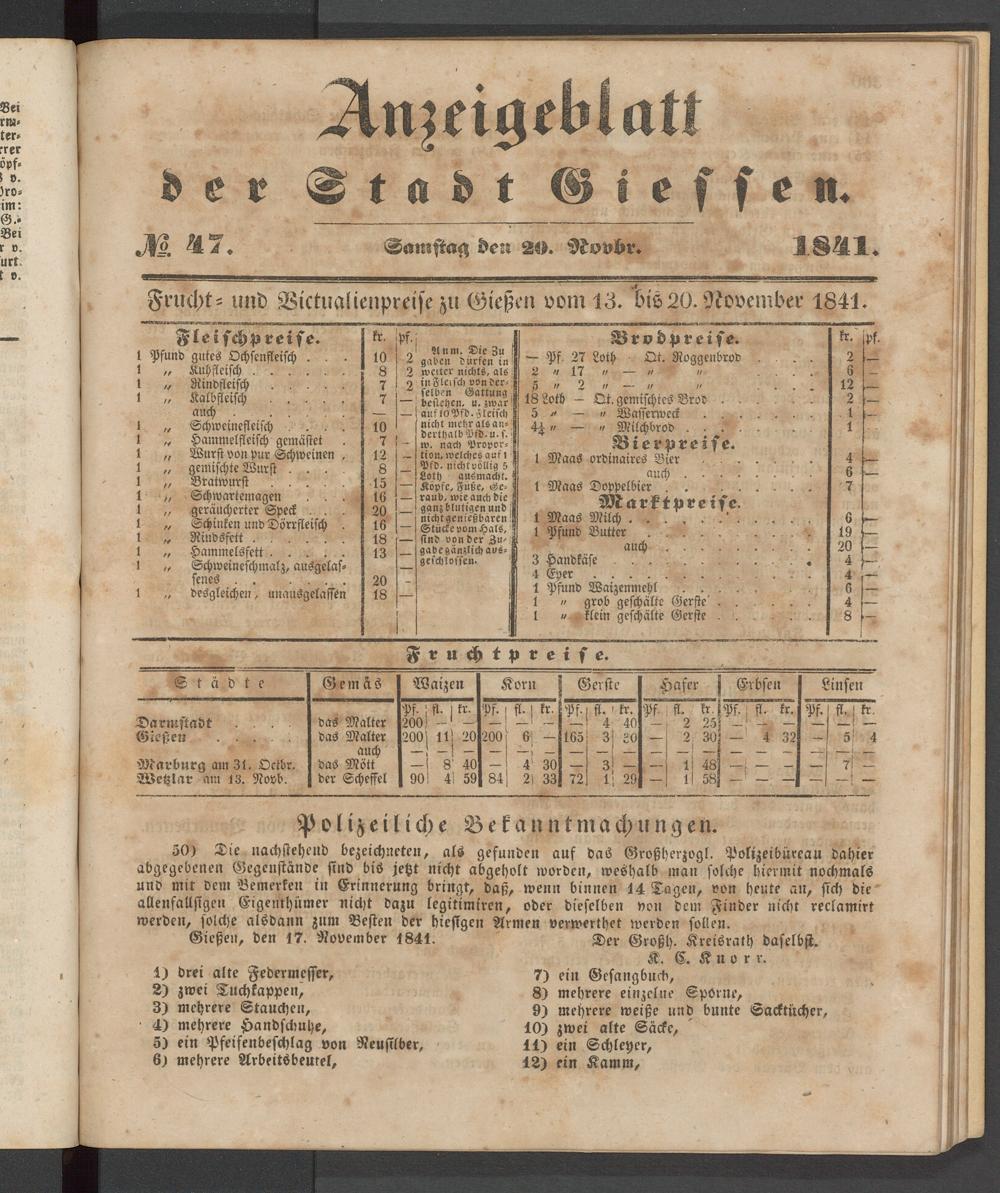 Bei
rm-
ter-
rrer
öpf-
v.
Oro-
im:
G.-
Bei
r v.
urt
t v.
Anzeigeblatt
der Stadt Giessen.
No. 47. Samstag den 20. Novbr. 1841.
Frucht- und Victualienpreise zu Gießen vom 13. bis 20. November 1841.
Fleischpreise. kr. pf.
1 Pfund gutes Ochsenfleisch . . . 10 2
1 „ Kuhfleisch . . . . 8 2
1 „ Rindfleisch . . . . 7 2
1 „ Kalbfleisch . . . . 7 —
auch . . . . — —
1 „ Schweinefleisch . . . 10 —
1 „ Hammelfleisch gemästet . 7 —
1 „ Wurst von pur Schweinen . 12 —
1 „ gemischte Wurst . . 8 —
1 „ Bratwurst . . . . 15 —
1 „ Schwartemagen . . . 16 —
1 „ geräucherter Speck . . 20 —
1 „ Schinken und Dörrfleisch . 16 —
1 „ Rindsfett . . . . 18 —
1 „ Hammelsfett . . . . 13 —
1 „ Schweineschmalz, ausgelas-
senes . . . . . 20 —
1 „ desgleichen, unausgelassen 18 —
Anm. Die Zu
gaben dürfen in
weiter nichts, als
in Fleisch von der-
selben Gattung
bestehen, u. zwar
auf 10 Pfd. Fleisch
nicht mehr als an-
derthalb Pfd. u. s.
w. nach Propor-
tion, welches auf 1
Pfd. nicht völlig 5
Loth ausmacht.
Köpfe, Füße, Ge-
raub, wie auch die
ganz blutigen und
nicht genießbaren
Stücke vom Hals,
sind von der Zu-
gabe gänzlich aus-
geschlossen.
Brodpreise. kr. pf.
— Pf. 27 Loth — Qt. Roggenbrod . . . . 2 —
2 „ 17 „ — „ „ . . . . 6 —
5 „ 2 „ — „ „ . . . . 12 —
18 Loth — Qt. gemischtes Brod . . . . . 2 —
5 „ — „ Wasserweck . . . . . 1 —
4½ „ — „ Milchbrod . . . . . 1 —
Bierpreise.
1 Maas ordinaires Bier . . . . . 4 —
auch . . . . . 6 —
1 Maas Doppelbier . . . . . 7 —
Marktpreise.
1 Maas Milch . . . . . . . 6 —
1 Pfund Butter . . . . . . . 19 —
auch . . . . . 20 —
3 Handkäse . . . . . . . 4 —
4 Eyer . . . . . . . 4 —
1 Pfund Waizenmehl . . . . . . 6 —
1 „ grob geschälte Gerste . . . . . 4 —
1 „ klein geschälte Gerste . . . . . 8 —
Fruchtpreise.
Städte Gemäs Waizen Korn Gerste Hafer Erbsen Linsen
Pf. fl. kr. Pf. fl. kr. Pf. fl. kr. Pf. fl. kr. Pf. fl. kr. Pf. fl. kr.
Darmstadt . . . das Malter 200 — — — — — — 4 40 — 2 25 — — — — — —
Gießen . . . . das Malter 200 11 20 200 6 — 165 3 30 — 2 30 — 4 32 — 5 4
auch — — — — — — — — — — — — — — — — — —
Marburg am 31. Octbr. das Mött — 8 40 — 4 30 — 3 — — 1 48 — — — — 7 —
Wetzlar am 13. Novb. der Scheffel 90 4 59 84 2 33 72 1 29 — 1 58 — — — — — —
Polizeiliche Bekanntmachungen.
50) Die nachstehend bezeichneten, als gefunden auf das Großherzogl. Polizeibüreau dahier
abgegebenen Gegenstände sind bis jetzt nicht abgeholt worden, weshalb man solche hiermit nochmals
und mit dem Bemerken in Erinnerung bringt, daß, wenn binnen 14 Tagen, von heute an, sich die
allenfallsigen Eigenthümer nicht dazu legitimiren, oder dieselben von dem Finder nicht reclamirt
werden, solche alsdann zum Besten der hiesigen Armen verwerthet werden sollen.
Gießen, den 17. November 1841. Der Großh. Kreisrath daselbst.
K. C. Knorr.
1) drei alte Federmesser,
2) zwei Tuchkappen,
3) mehrere Stauchen,
4) mehrere Handschuhe,
5) ein Pfeifenbeschlag von Neusilber,
6) mehrere Arbeitsbeutel,
7) ein Gesangbuch,
8) mehrere einzelne Sporne,
9) mehrere weiße und bunte Sacktücher,
10) zwei alte Säcke,
11) ein Schleyer,
12) ein Kamm,